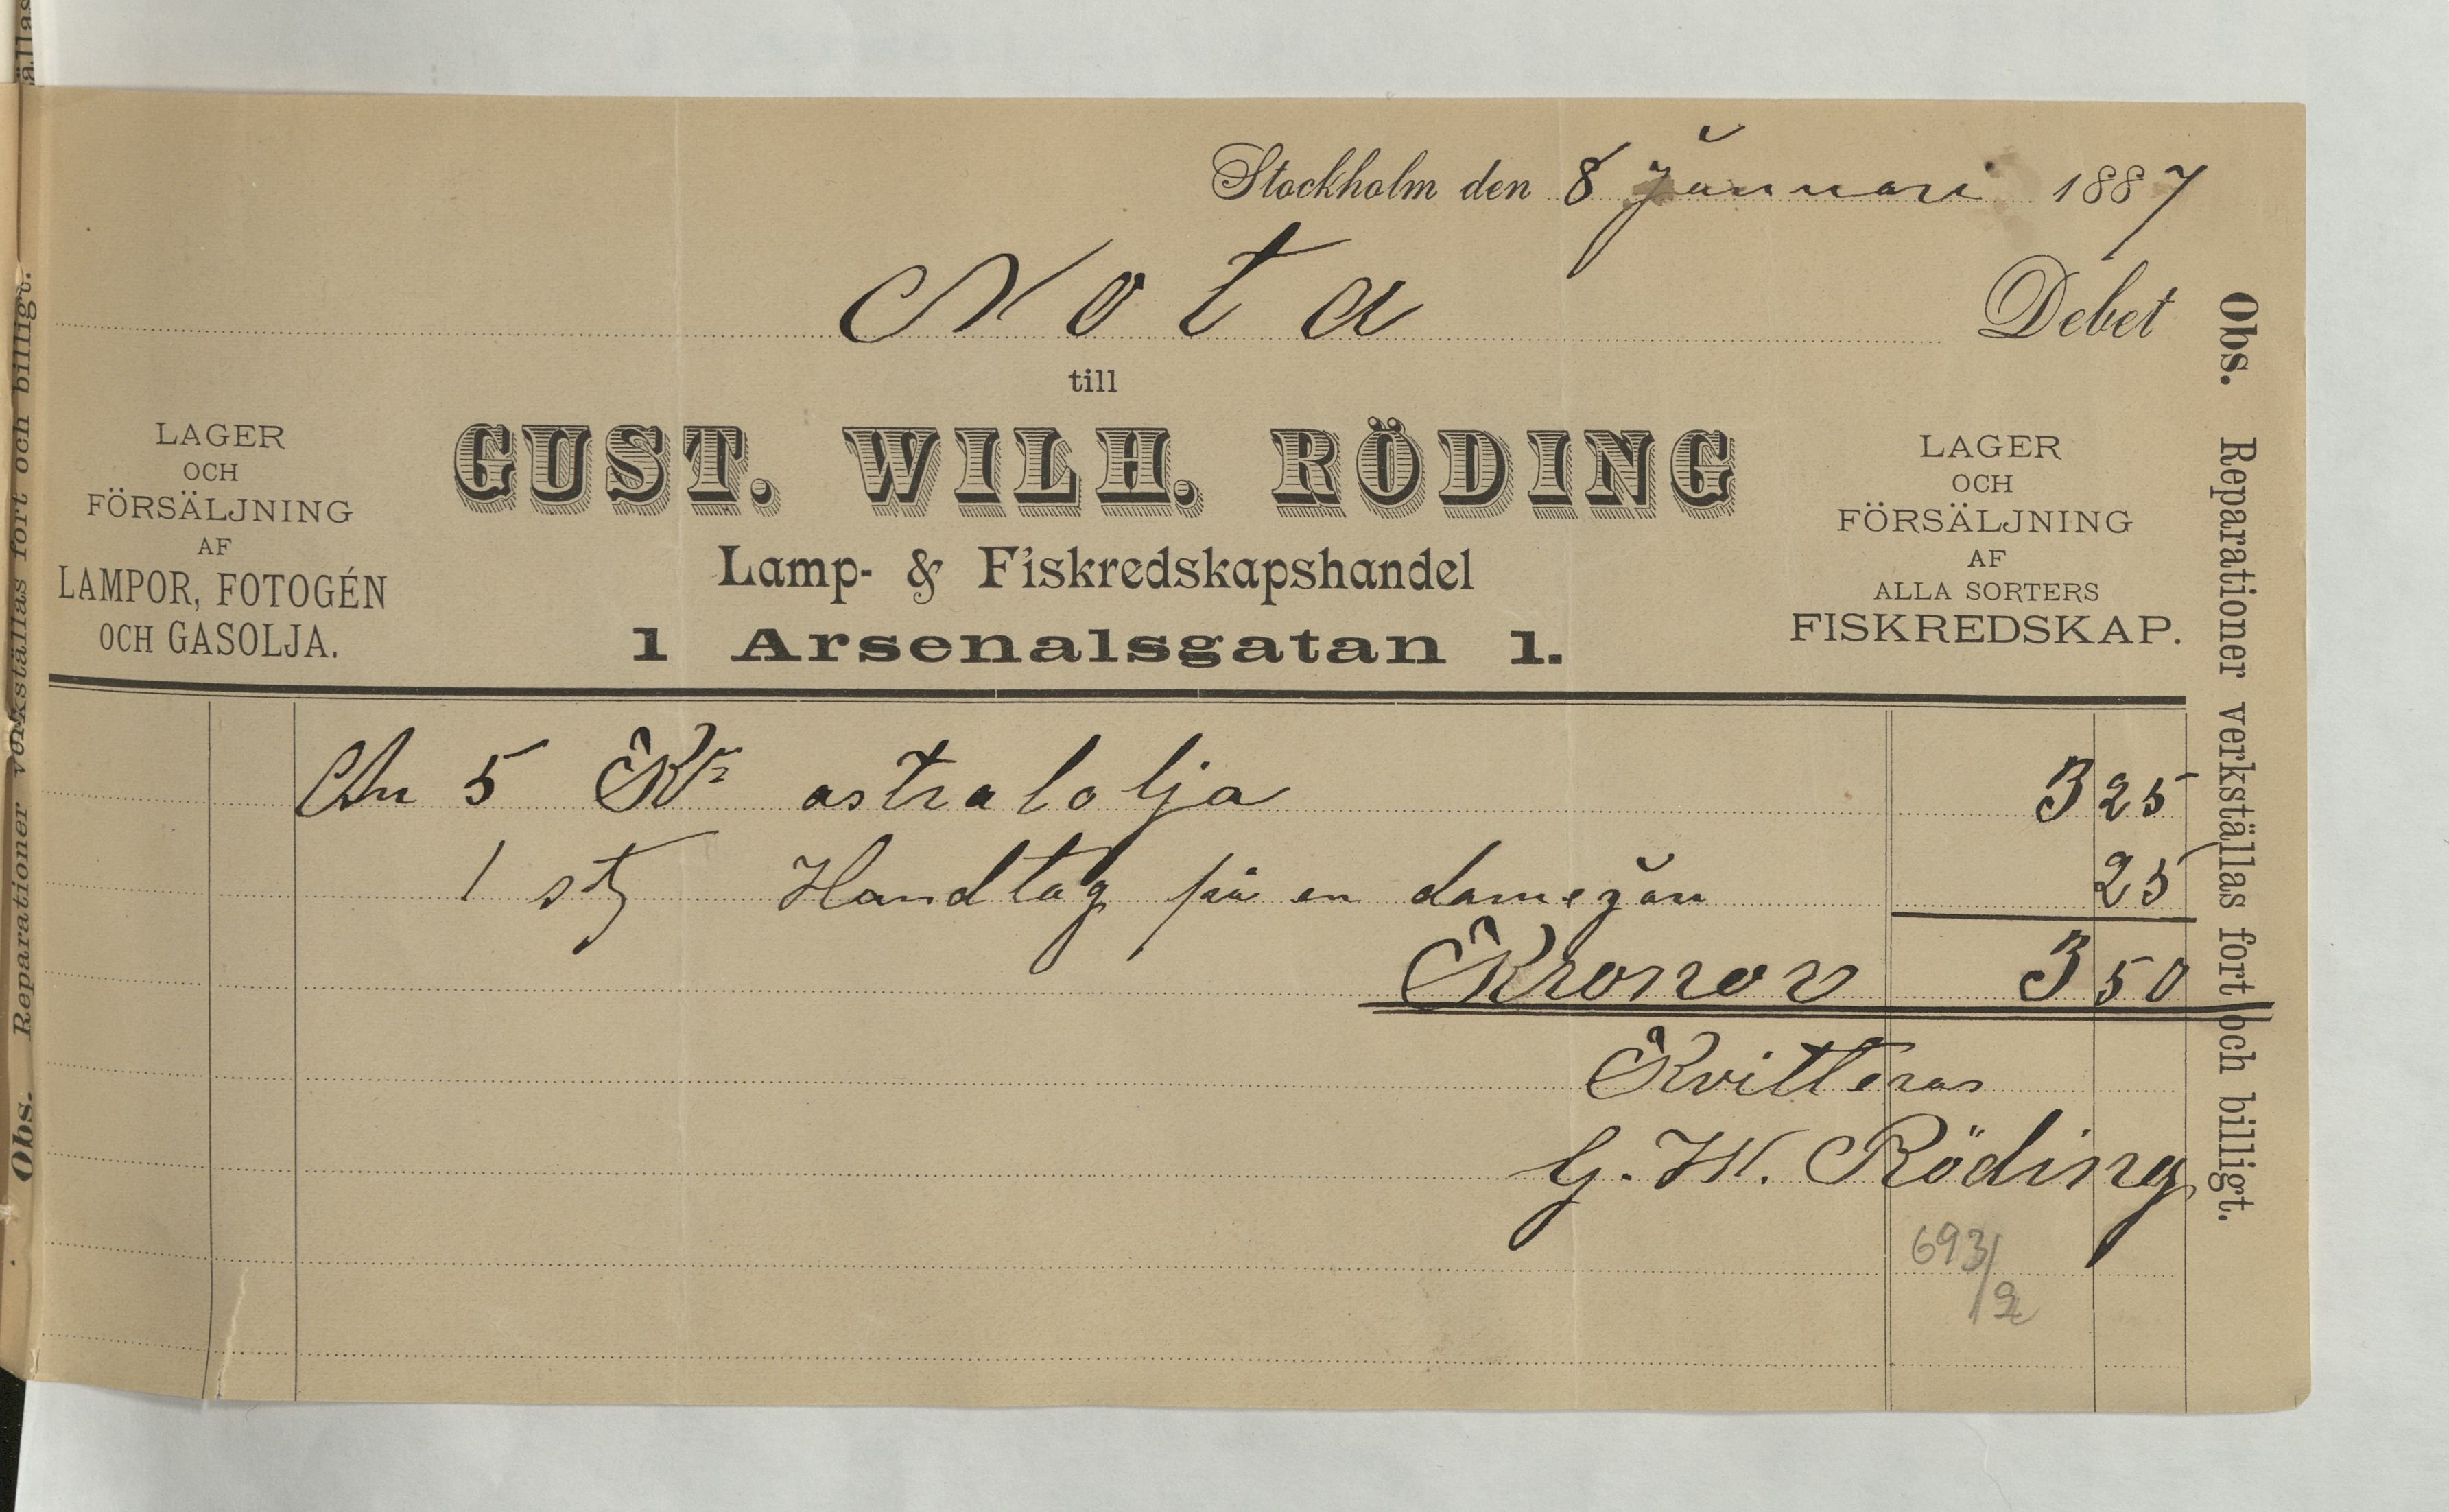 Stockholm den 8 Januari 1887
Nota Debet
till
GUST. WILH. RÖDING
Lamp- & Fiskredskapshandel
1 Arsenalsgatan 1.
LAGER
OCH
FÖRSÄLJNING
AF
LAMPOR, FOTOGÉN
OCH GASOLJA.
LAGER
OCH
FÖRSÄLJNING
AF
ALLA SORTERS
FISKREDSKAP.
An 5 Kr astralolja 3 25
1 st Handtag på en damejan 25
Kronor 3 50
Kvitteras
G. W. Röding
693/2
Obs. Reparationer verkställas fort och billigt.
Obs. Reparationer verkställas fort och billigt.
ällas